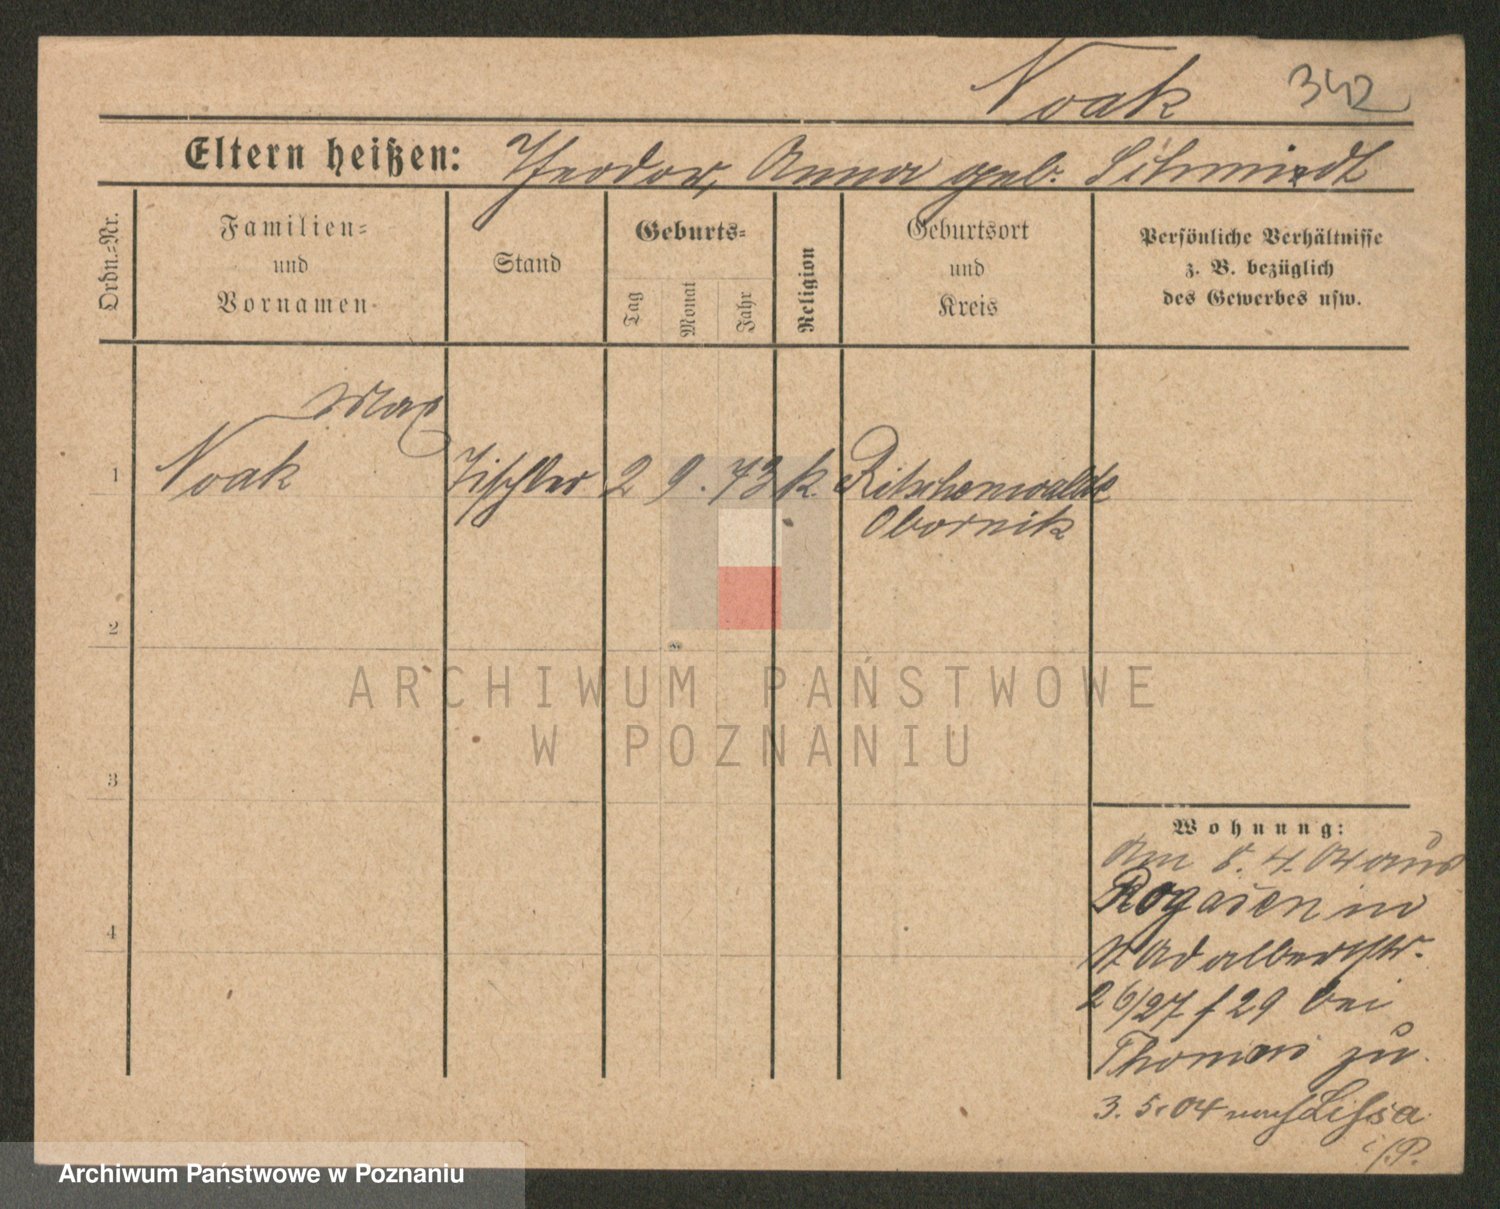 Noak 342
Eltern heißen: Theodor, Anna geb. Schmidt
Ordn.-Nr.
Familien-
und
Vornamen
Stand
Geburts-
Tag
Monat
Jahr
Religion
Geburtsort
und
Kreis
Persönliche Verhältnisse
z. B. bezüglich
des Gewerbes usw.
Max
1 Noak Tischler 2 9. 73 k. Ritschenwalde
Obornik
2
3
4
Wohnung:
Am 8. 4. 04 aus
Rogasen in
St Adalbertstr.
26/27 f 29 bei
Thomas zu.
3. 5. 04 nach Lissa
i/P.
ARCHIWUM PAŃSTWOWE
W POZNANIU
Archiwum Państwowe w Poznaniu